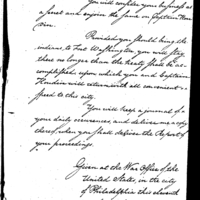 You will consider yourself as
a secret and enjoin the same on Captain Hen-
drin.
Provided you should bring the
indians, to Fort Washington, you will stay
there no longer than the treaty shall be ac-
complished, upon which you and Captain
will return with all convenient
speed to this city.
You will keep a journal of
your daily occurrences, and deliver me a copy
thereof, when you shall deliver the Report of
your proceedings.
Given at the War Office of the
United States, in the city
of Philadelphia this eleventh